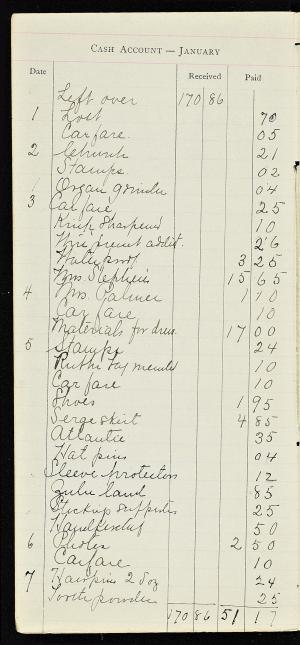 CASH ACCOUNT — JANUARY
Date Received Paid
Left over 170 86
1 Lost 70
Carfare. 05
2 Church 21
Stamps. 02
Organ grinder 04
3 Carfare 25
Knife sharpened 10
26
Waterproof 3 25
Mrs. Stephens 15 65
4 Mrs. Palmer 1 10
Car fare 10
Materials for dress 17 00
5 Stamps 24
Ruth's mended 10
Car fare 10
Shoes 1 95
Serge skirt 4 85
Atlantic 35
Hat pins 04
Sleeve protectors 12
Zulu land 85
Stocking supporters 25
Handkerchief 50
6 Photos 2 50
Carfare 10
7 Hairpins 2 doz 24
Tooth powder 25
170 86 51 17